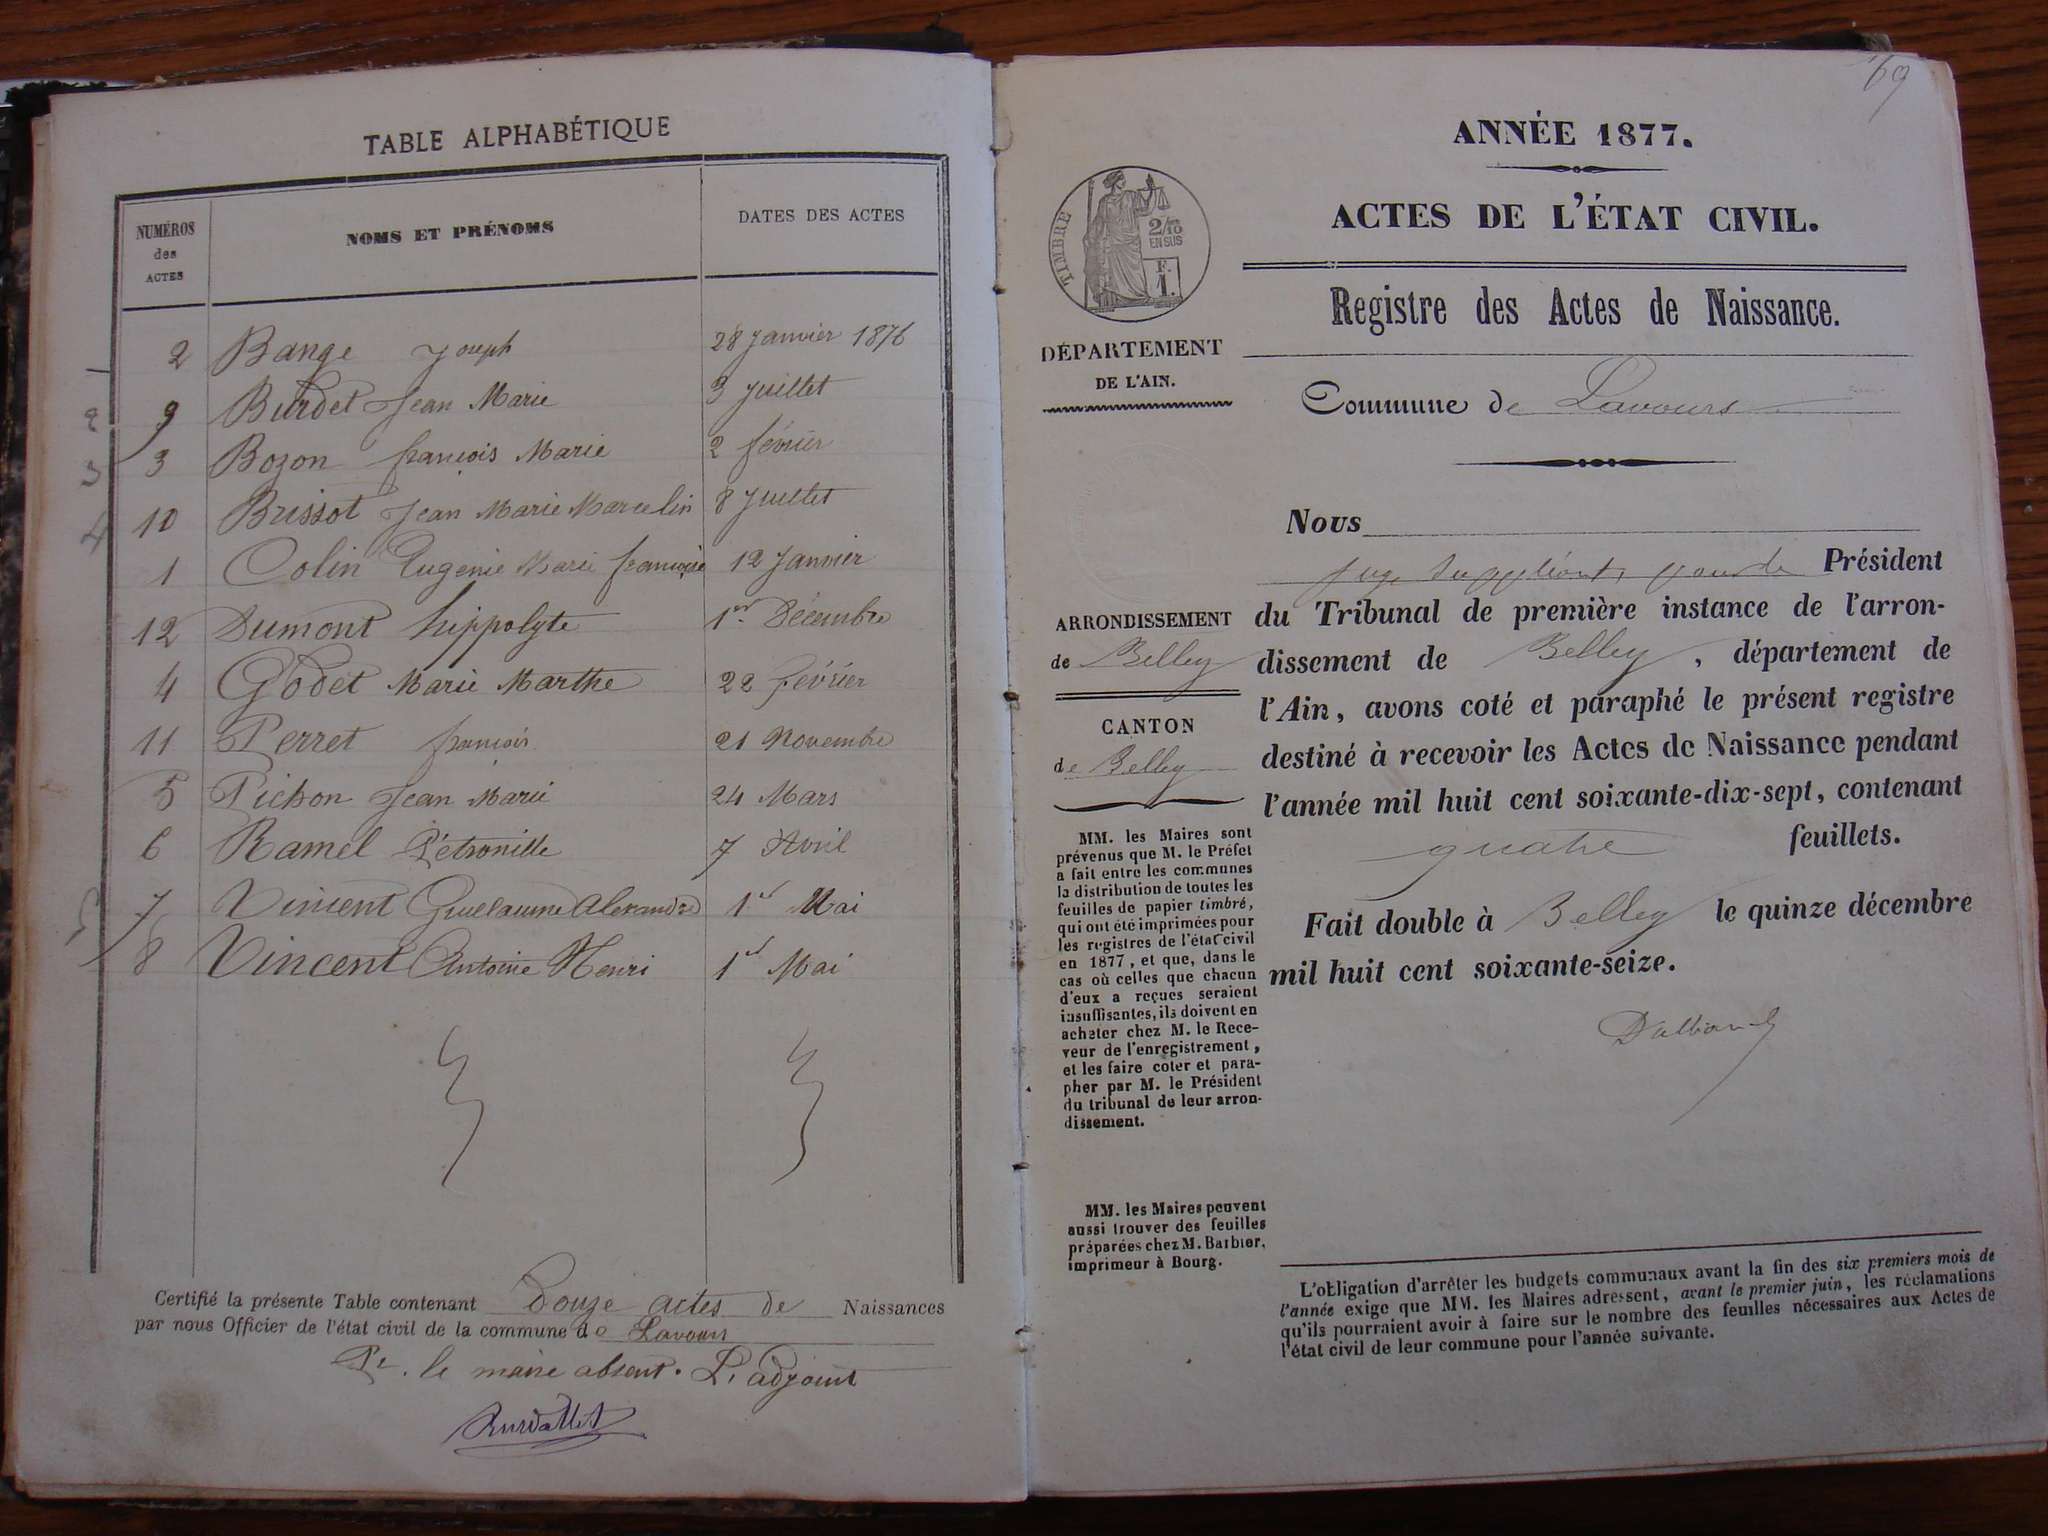 TABLE ALPHABÉTIQUE
NUMÉROS des ACTES NOMS ET PRÉNOMS DATES DES ACTES
2 Bange Joseph 28 Janvier 1876
9 Burdet Jean Marie 3 Juillet
3 Bozon françois Marie 2 février
10 Brissot Jean Marie Marcelin 8 Juillet
1 Colin Eugenie Marie françoise 12 Janvier
12 Dumont hippolyte 1er Décembre
4 Godet Marie Marthe 22 février
11 Perret françois 21 Novembre
5 Pichon Jean Marie 24 Mars
6 Ramel Pétronille 7 Avril
7 Vincent Guillaume Alexandre 1er Mai
8 Vincent Antoine Henri 1er Mai
1
2
3
4
5
Certifié la présente Table contenant douze actes de Naissances
par nous Officier de l'état civil de la commune de Lavours
Pr. le maire absent. L'adjoint
69
ANNÉE 1877.
ACTES DE L'ÉTAT CIVIL.
TIMBRE
2/10
EN SUS
F.
1.
Registre des Actes de Naissance.
DÉPARTEMENT
DE L'AIN.
Commune de Lavours
Nous
juge suppléant, pour le Président
du Tribunal de première instance de l'arron-
dissement de Belley, département de
l'Ain, avons coté et paraphé le présent registre
destiné à recevoir les Actes de Naissance pendant
l'année mil huit cent soixante-dix-sept, contenant
quatre feuillets.
Fait double à Belley le quinze décembre
mil huit cent soixante-seize.
ARRONDISSEMENT
de Belley
CANTON
de Belley
MM. les Maires sont
prévenus que M. le Préfet
a fait entre les communes
la distribution de toutes les
feuilles de papier timbré,
qui ont été imprimées pour
les registres de l'état civil
en 1877, et que, dans le
cas où celles que chacun
d'eux a reçues seraient
insuffisantes, ils doivent en
acheter chez M. le Rece-
veur de l'enregistrement,
et les faire coter et para-
pher par M. le Président
du tribunal de leur arron-
dissement.
MM. les Maires peuvent
aussi trouver des feuilles
préparées chez M. Barbier,
imprimeur à Bourg.
L'obligation d'arrêter les budgets communaux avant la fin des six premiers mois de
l'année exige que MM. les Maires adressent, avant le premier juin, les réclamations
qu'ils pourraient avoir à faire sur le nombre des feuilles nécessaires aux Actes de
l'état civil de leur commune pour l'année suivante.